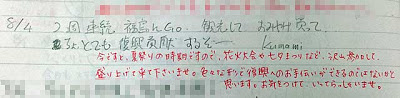 8/4 2周連続 福島へGo. 観光して おみやげ買って、
ちょっとでも 復興貢献 するぞー Kumami
今ですと、夏祭りの時期ですので、花火大会や七夕まつりなど、沢山参加して、
盛り上げて来て下さいませ。色々な形で復興へのお手伝いができるのではないかと
思います。お気をつけて、いってらっしゃいませ。